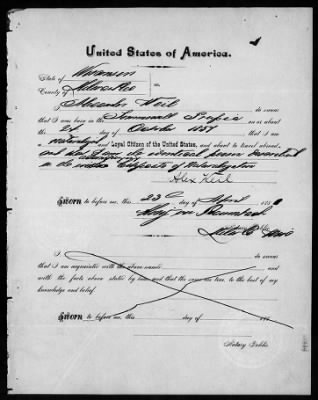 United States of America.
State of Wisconsin
County of Milwaukee } ss.
Alexander Weil do swear
that I was born in the
on or about
the 21 day of October
a
naturalized and Loyal Citizen of the United States, and about to travel abroad,
and that I am the identical person described
in the Certificate of Naturalization
Alex Weil
SWORN to before me, this 23 day of April 187
I do swear
that I am acquainted with the above named and
with the facts above stated by him, and that the same are true, to the best of my
knowledge and belief.
SWORN to before me, this day of 187
Notary Public